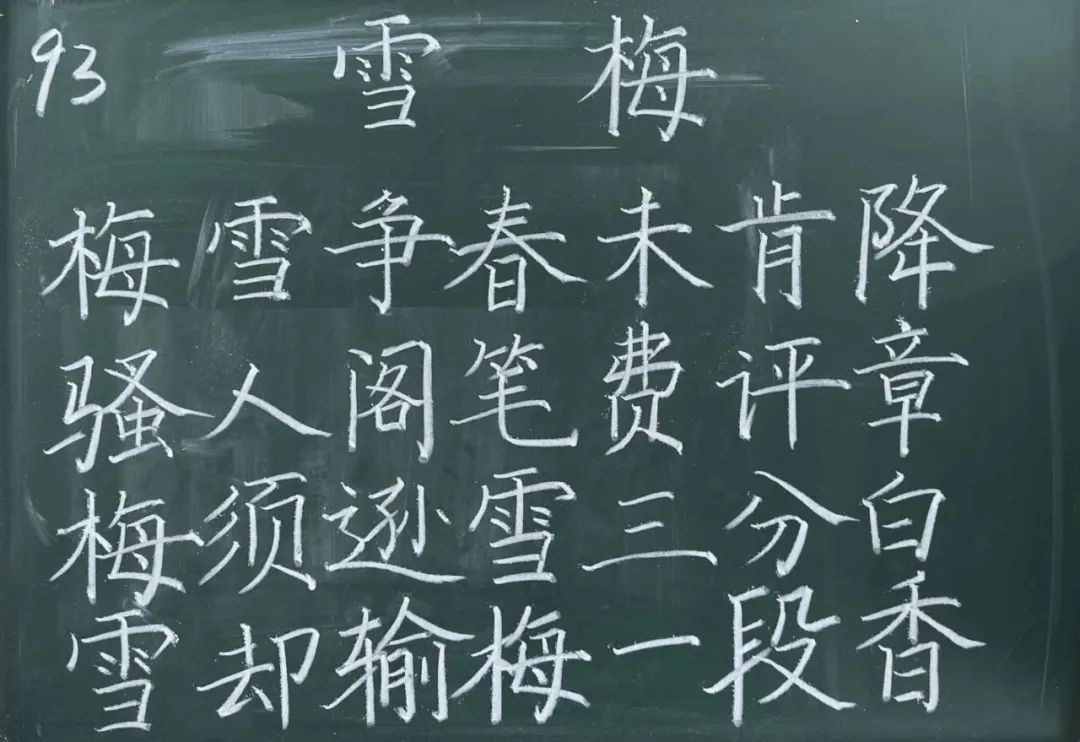 93 雪梅
梅雪争春未肯降
骚人阁笔费评章
梅须逊雪三分白
雪却输梅一段香